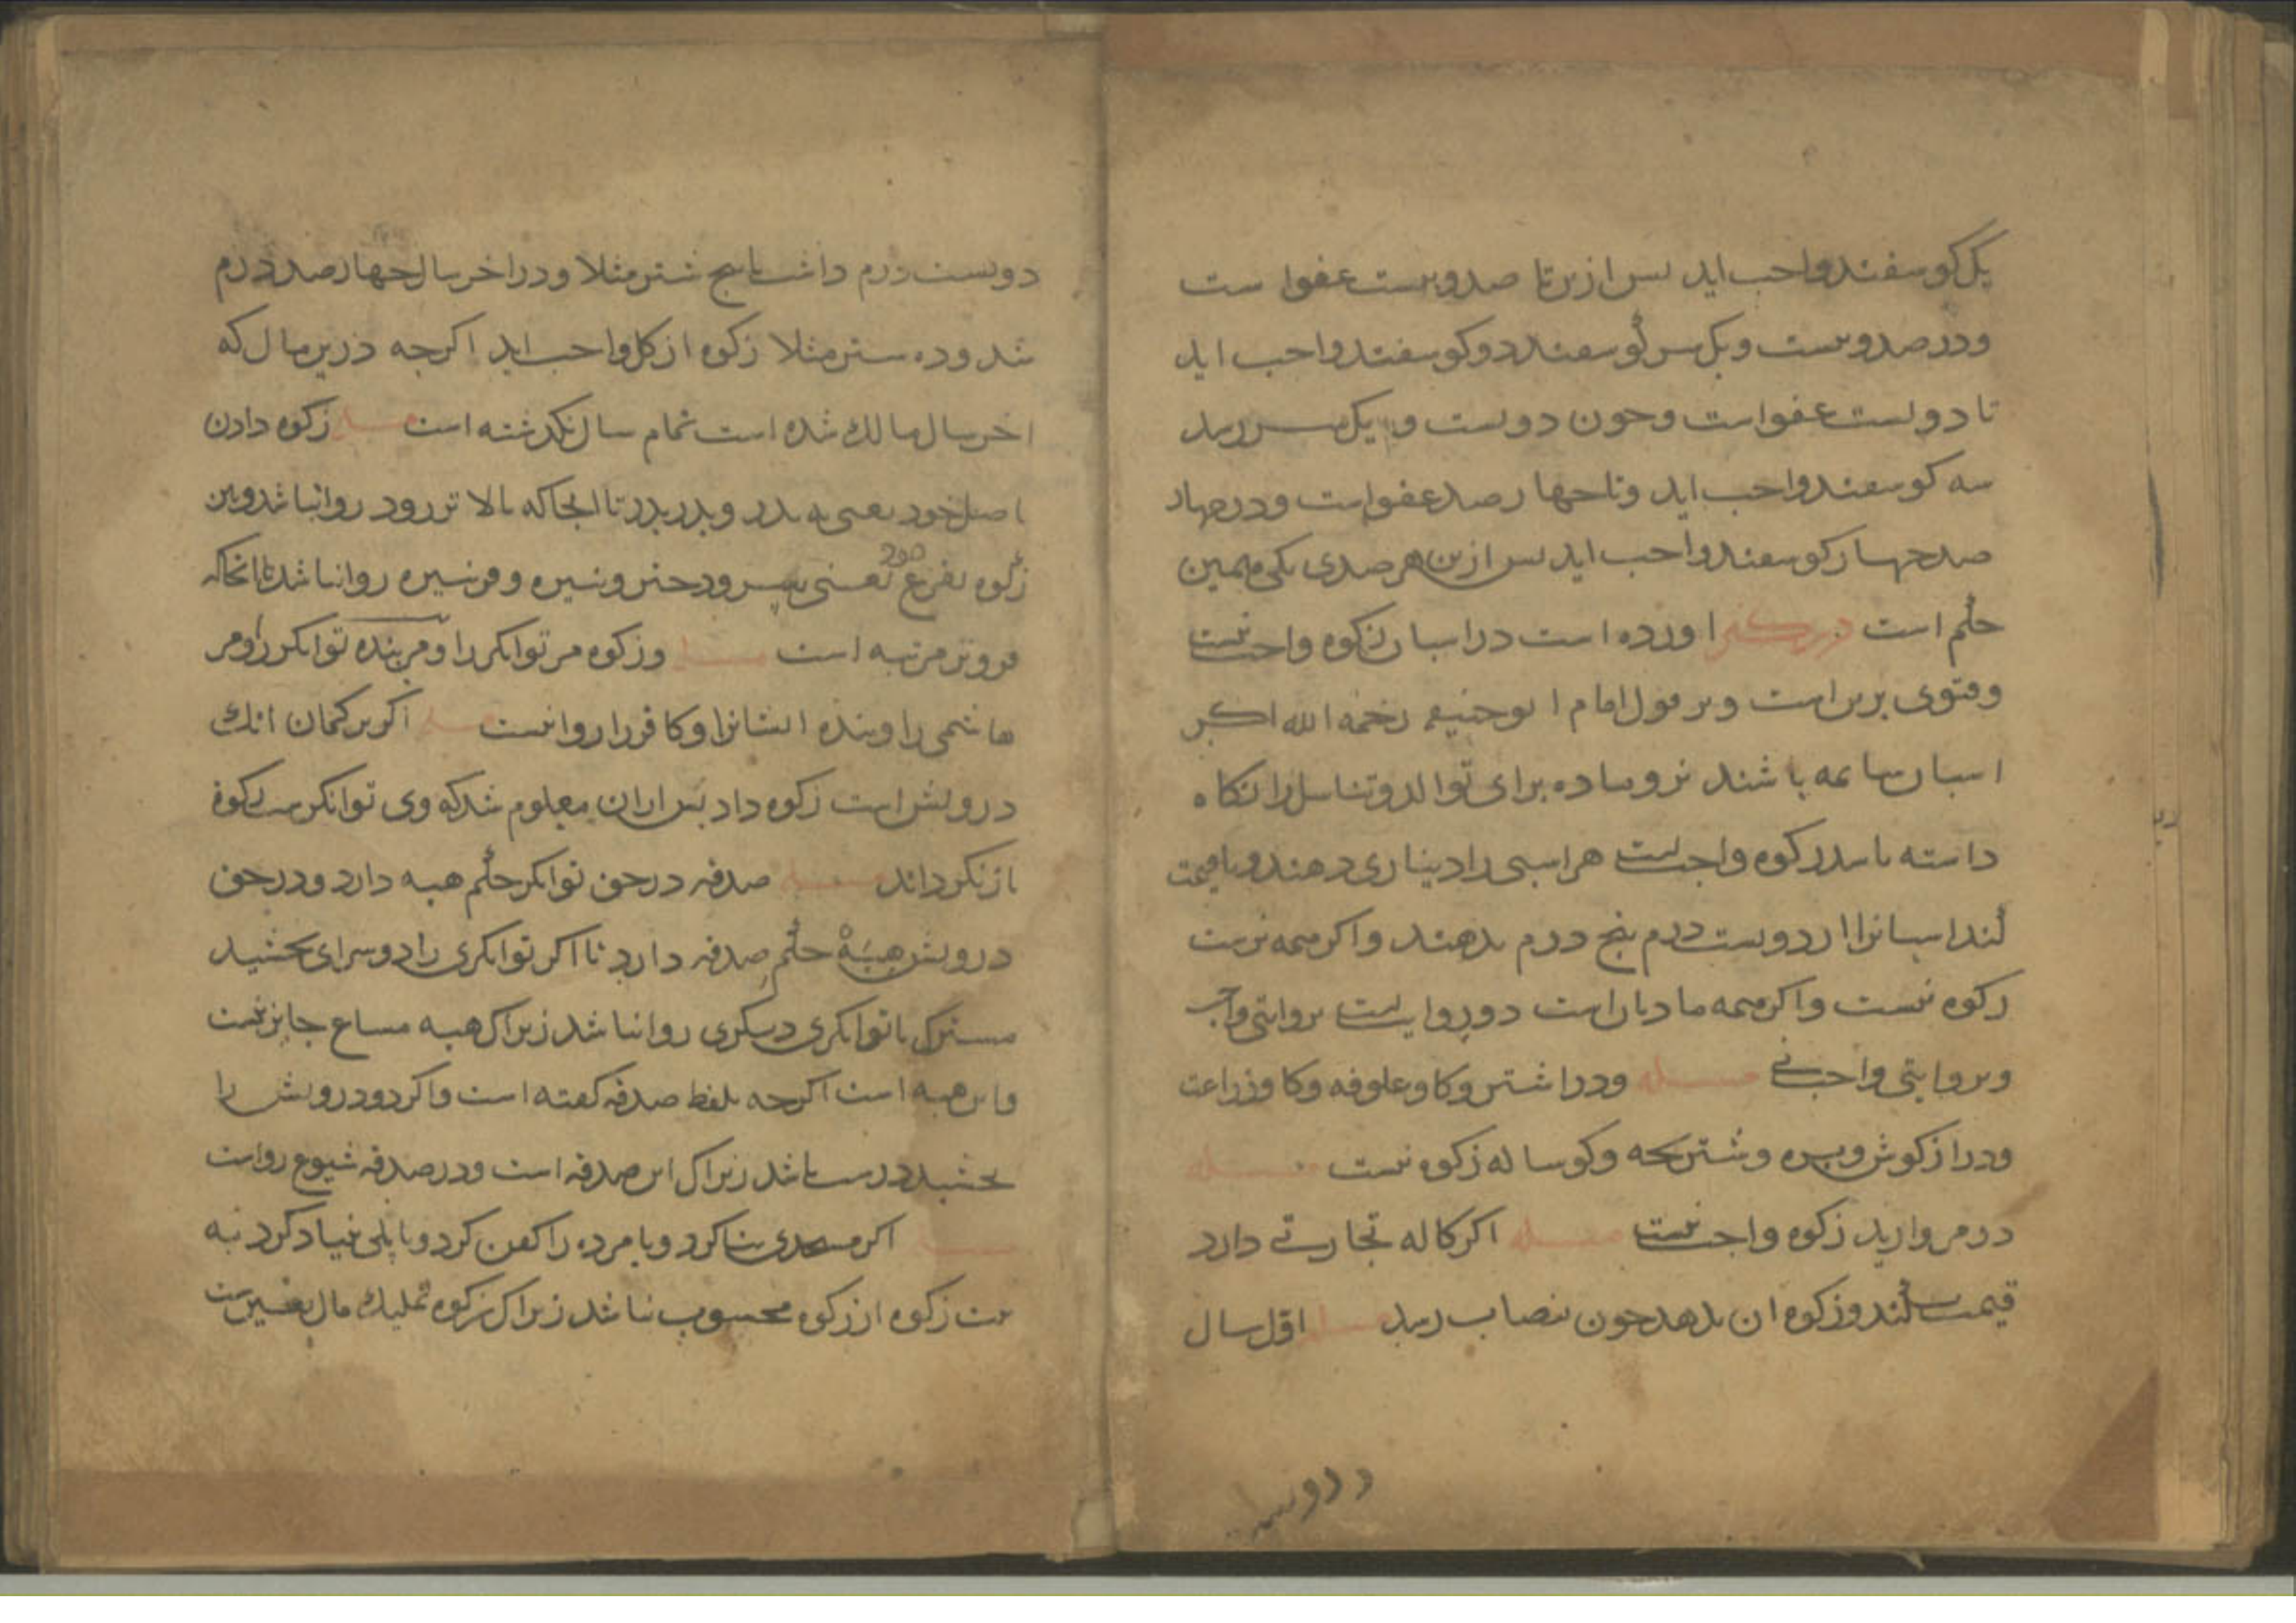 یک کوسفند واجب اید بس ازین تا صد و بیست عفو است
و در صد و بیست و یک سر کوسفند دو کوسفند واجب اید
تا دویست عفو است و جون دویست و یک سر رسد
سه کوسفند واجب اید و تا جهار صد عفو است و در جهار
صد جهار کوسفند واجب اید بس ازین هر صدی یکی همین
حکم است در کنز اورده است در اسبان زکوه واجب نیست
و فتوی برین است و بر قول امام ابو حنیفه رحمه الله اکر
اسبان سایمه باشند نر و ماده برای توالد و تناسل را نکاه
داشته باشد زکوه واجب است هر اسبی را دیناری دهند و یا قیمت
کند اسبانرا از دویست درم بنج درم بدهند و اکر همه نر است
زکوه نیست و اکر همه مادیان است دو روایت است بروایتی واجب
و بروایتی واجب نی مسله و در اشتر و کاو علوفه و کاو زراعت
و دراز کوش و بره و شتر بجه و کوساله زکوه نیست مسله
در مروارید زکوه واجب نیست مسله اکر کاله تجارتی دارد
قیمت کند و زکوه ان بدهد جون بنصاب رسد مسله اول سال
دویست
دویست درم داشت یا بنج شتر مثلا و در اخر سال جهار صد درم
شد و ده شتر مثلا زکوه از کل واجب اید اکرجه درین مال که
اخر سال مالک شده است تمام سال نکذشته است مسله زکوه دادن
باصل خود یعنی به بدر و بدر بدر تا انجا که بالا تر رود روا نباشد وین
200
زکوه بفرع یعنی بسر و دختر و نبسه و فرنبسه روا نباشد تا انجاکه
فروتر مرتبه است مسله و زکوه مر توانکر را و مر بنده توانکر را و مر
هاشمی را و بنده ایشانرا و کافر را روا نیست مسله اکر بر کمان انک
درویش است زکوه داد بس ازان معلوم شد که وی توانکر است زکوة
باز نکرداند مسله صدقه در حق توانکر حکم هبه دارد و در حق
درویش هبهٔ حکم صدقه دارد تا اکر توانکری را دو سرای بخشید
مشترک با توانکری دیکری روا نباشد زیراک هبه مشاع جایز نیست
و این هبه است اکرجه بلفظ صدقه کفته است و اکر دو درویش را
بخشید درست باشد زیراک این صدقه است و در صدقه شیوع رواست
مسله اکر مسجدی بنا کرد و یا مرده را کفن کرد و یا پلی بنیاد کرد به
نیت زکوه از زکوه محسوب نباشد زیراک زکوه تملیک مال بفقیر است